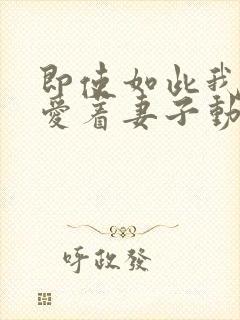 即使如此我
愛着妻子動
呼政發